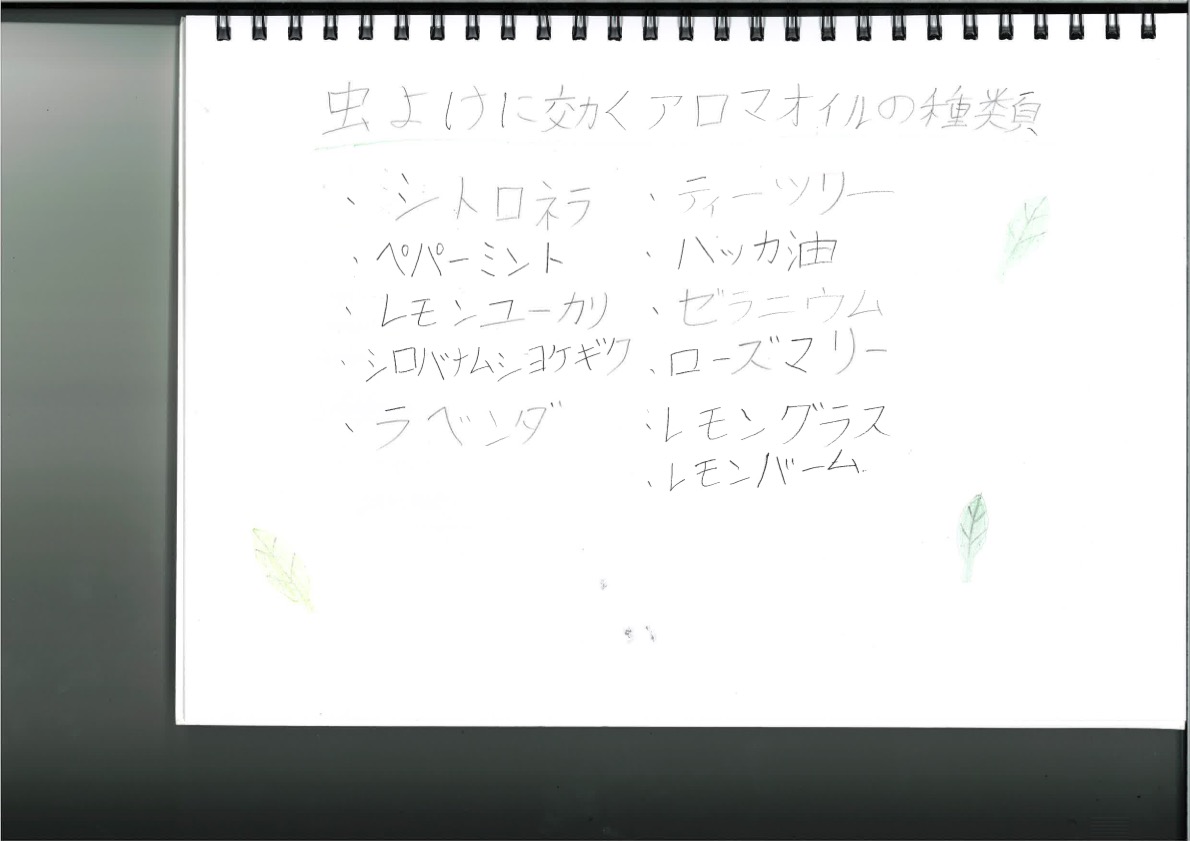 虫よけに効くアロマオイルの種類
・シトロネラ
・ペパーミント
・レモンユーカリ
・シロバナムシヨケギク
・ラベンダ
・ティーツリー
・ハッカ油
・ゼラニウム
・ローズマリー
・レモングラス
・レモンバーム